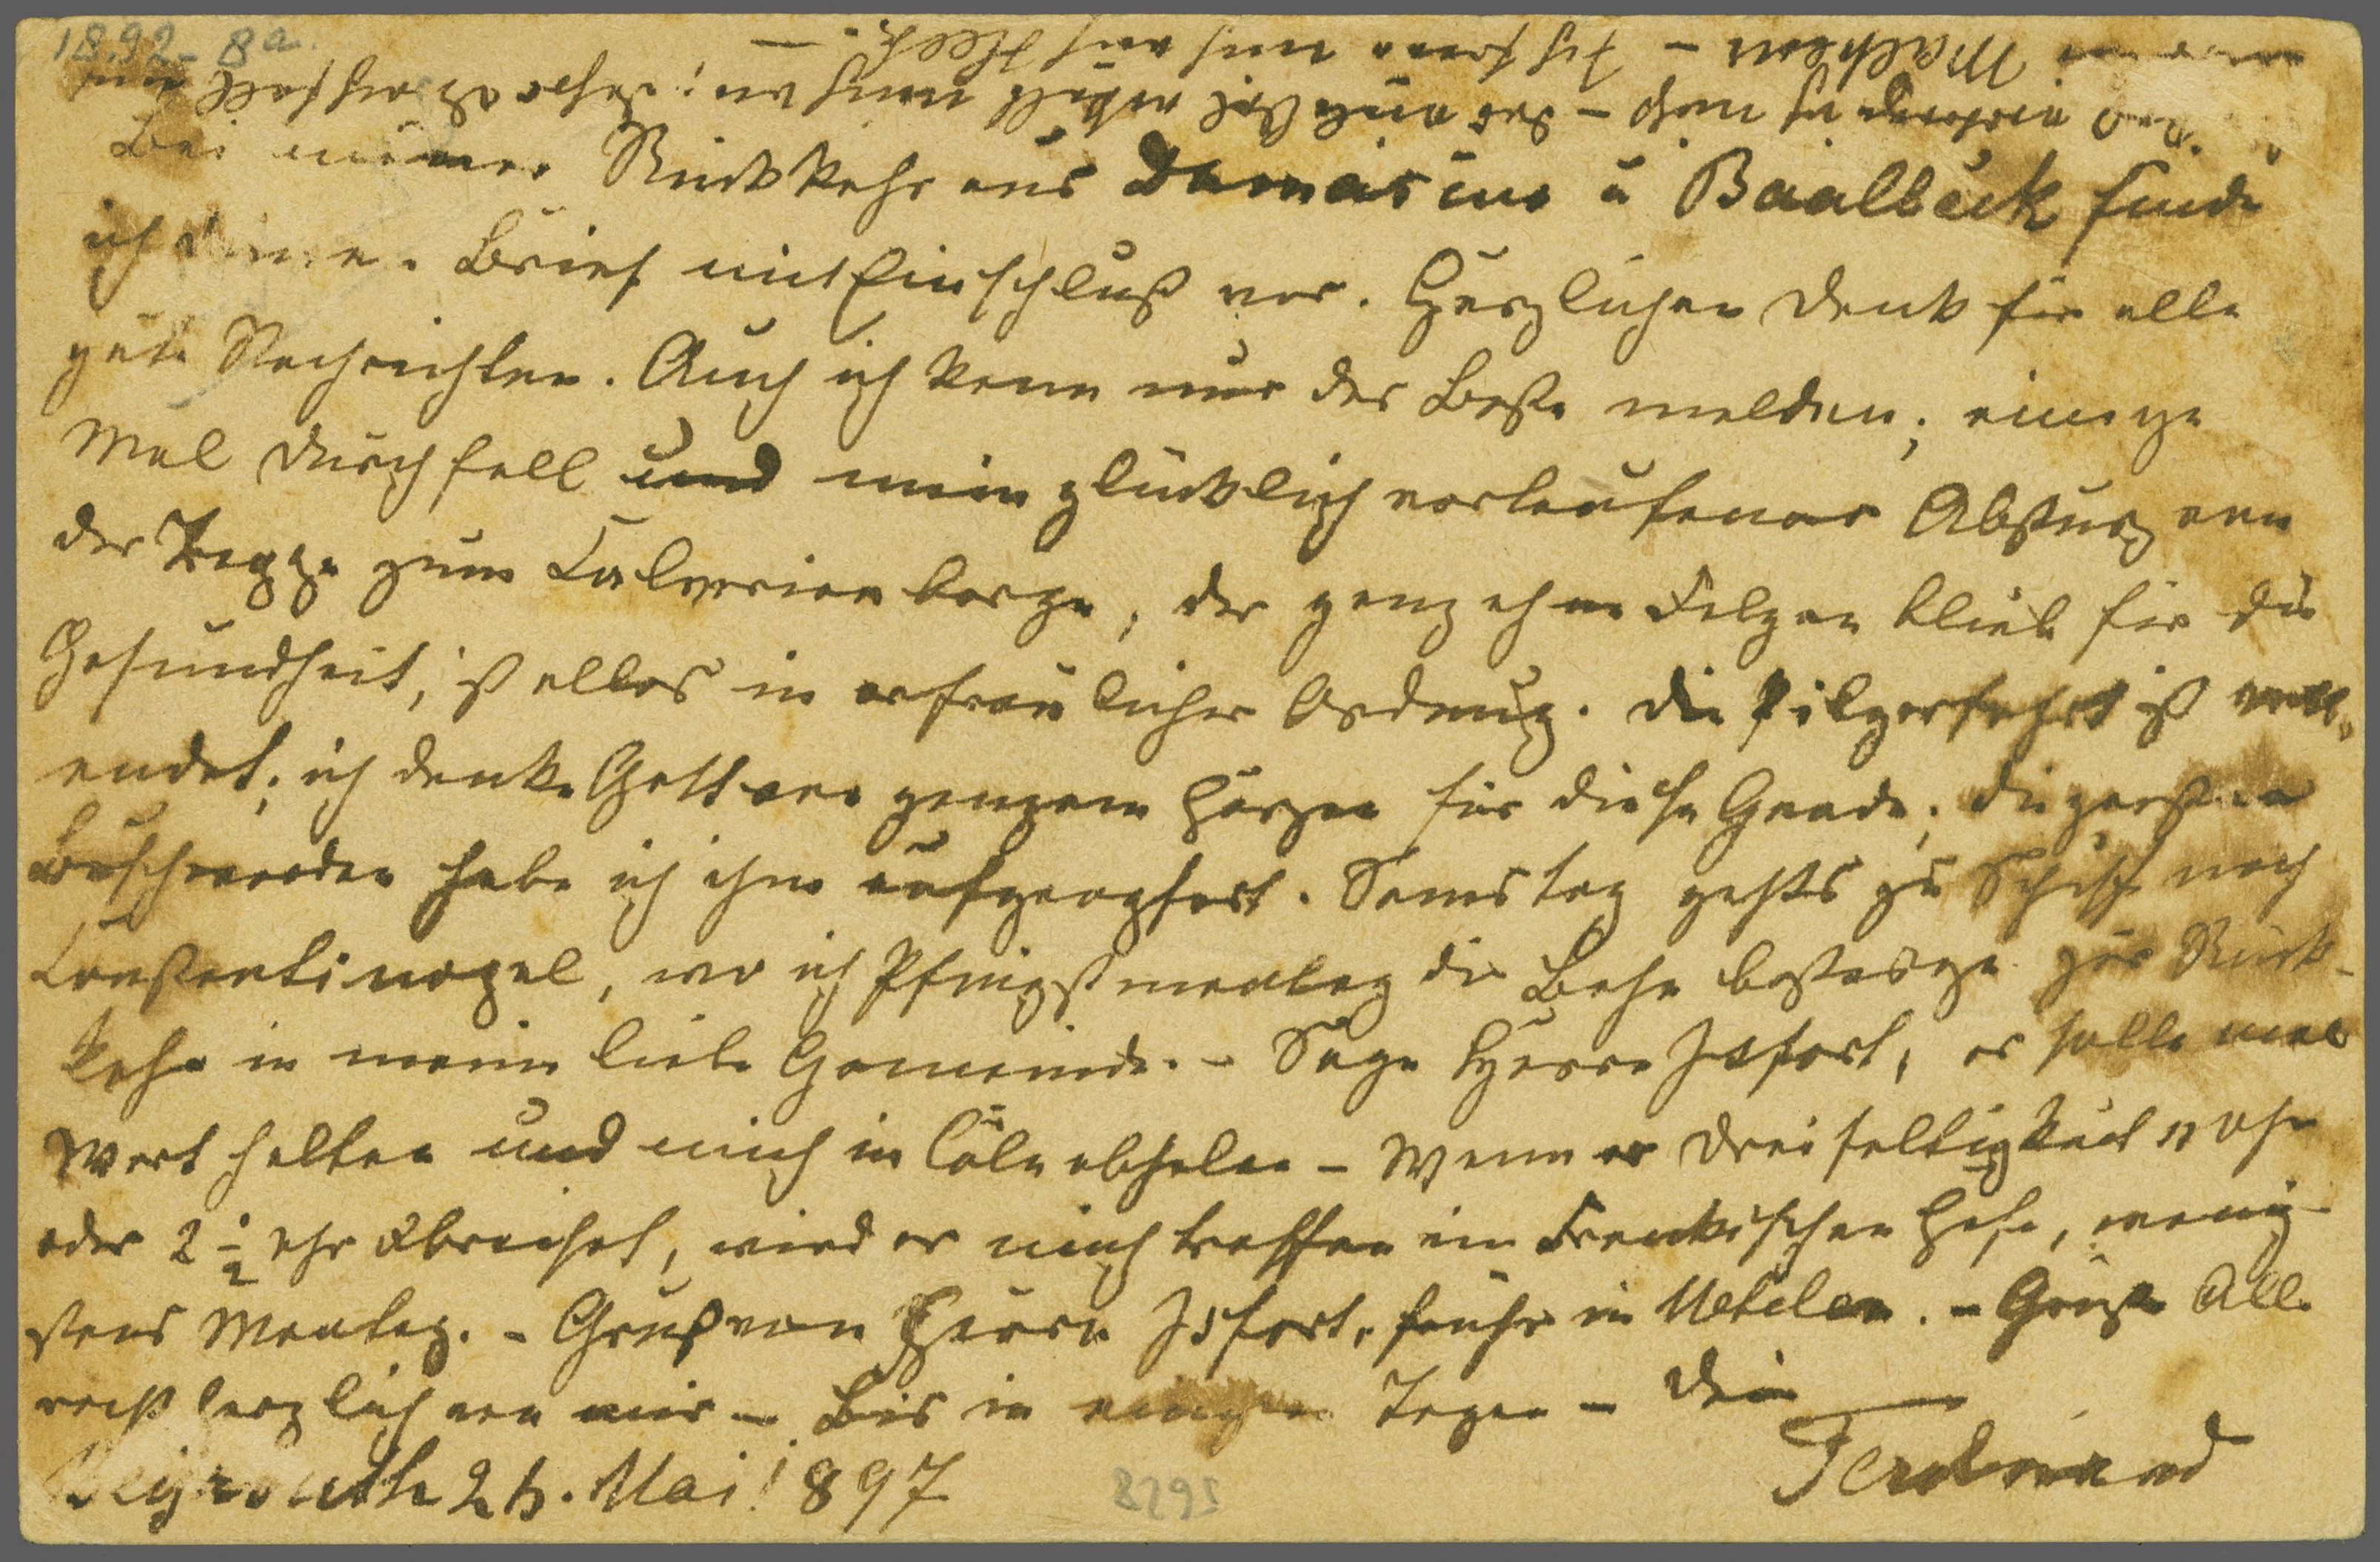 1892-8a.
Bei meiner Rückkehr aus Damascus u Baalbeck finde
ich Deinen Brief mit Einschluß vor. Herzlichen Dank für alle
gute Nachrichten. Auch ich kann nur das Beste melden; einige
Mal Durchfall und mein glücklich verlaufener Absturz von
der Treppe zum Calvarienberge, der ganz ohne Folgen blieb für die
Gesundheit, ist alles in erfreulicher Ordnung. Die Pilgerfahrt ist voll-
endet; ich danke Gott von ganzem Herzen für diese Gnade; die
Beschwerden habe ich ihm aufgeopfert. Samstag gehts zu Schiff nach
Constantinopel, wo ich Pfingstmontag die Bahn besteige zur Rück-
kehr in meine liebe Gemeinde. - Sage Herrn Isfort, er solle mal
Wort halten und mich in Cöln abholen - Wenn er Dreifaltigkeit 11 Uhr
oder 2 1/2 Uhr abreiset, wird er mich treffen im Fränkischen Hofe, wenig-
stens Montag. - Gruß von Herrn Isfort, früher in Metelen. - Grüße Alle
recht herzlich von mir - Bis in einigen Tagen - Dein
Ferdinand
Beyrouth 26. Mai 1897
8295